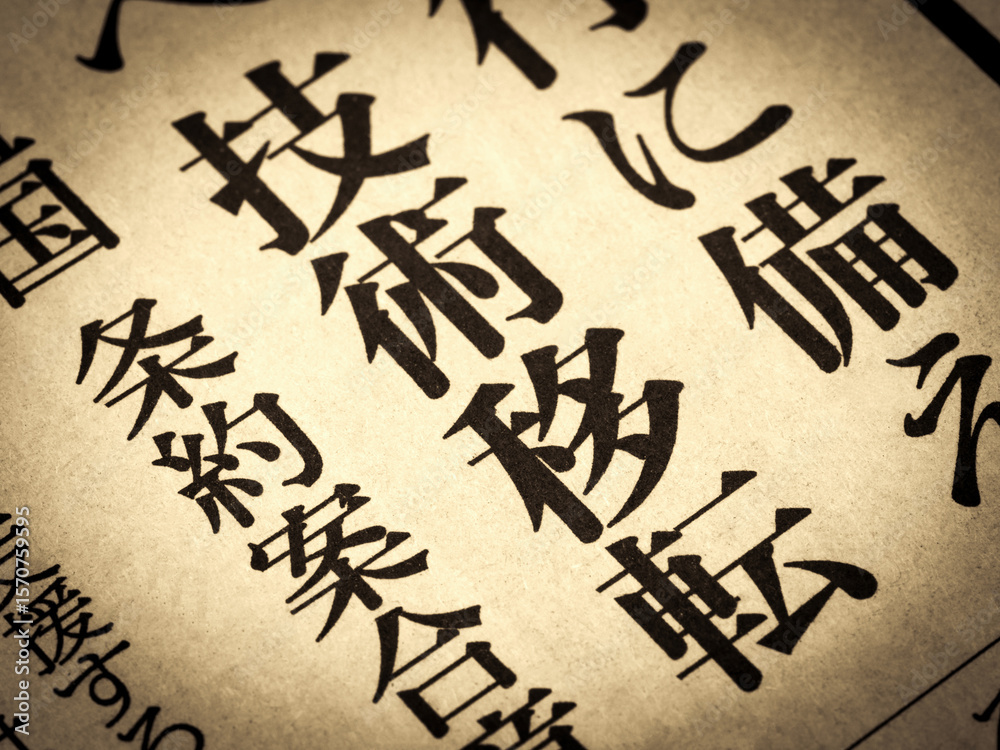 に備える
技術移転
条約案合意
国
援する